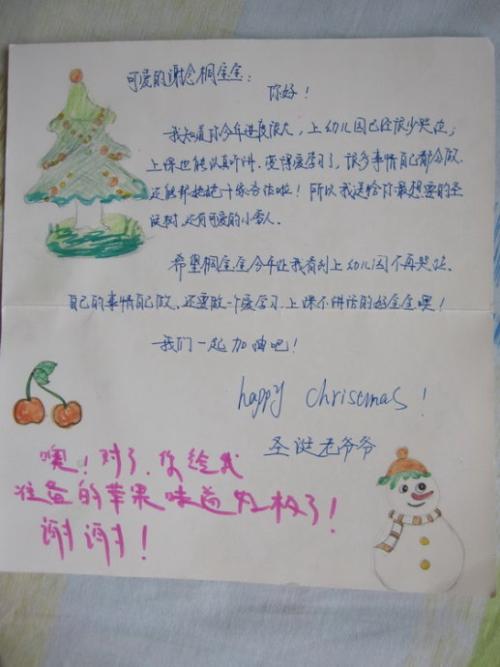 可爱的谢念桐宝宝：
你好！
我知道你今年进度很大，上幼儿园已经很少哭泣；
上课也能认真听讲，变得爱学习了，很多事情自己都会做，
还能帮妈妈干家务活啦！所以我送给你最想要的圣
诞树，还有可爱的小雪人。
希望桐宝宝今年让我看到上幼儿园不再哭泣、
自己的事情自己做，还要做一个爱学习、上课不讲话的好宝宝噢！
我们一起加油吧！
happy christmas！
圣诞老爷爷
噢！对了，你给我
准备的苹果味道好极了！
谢谢！